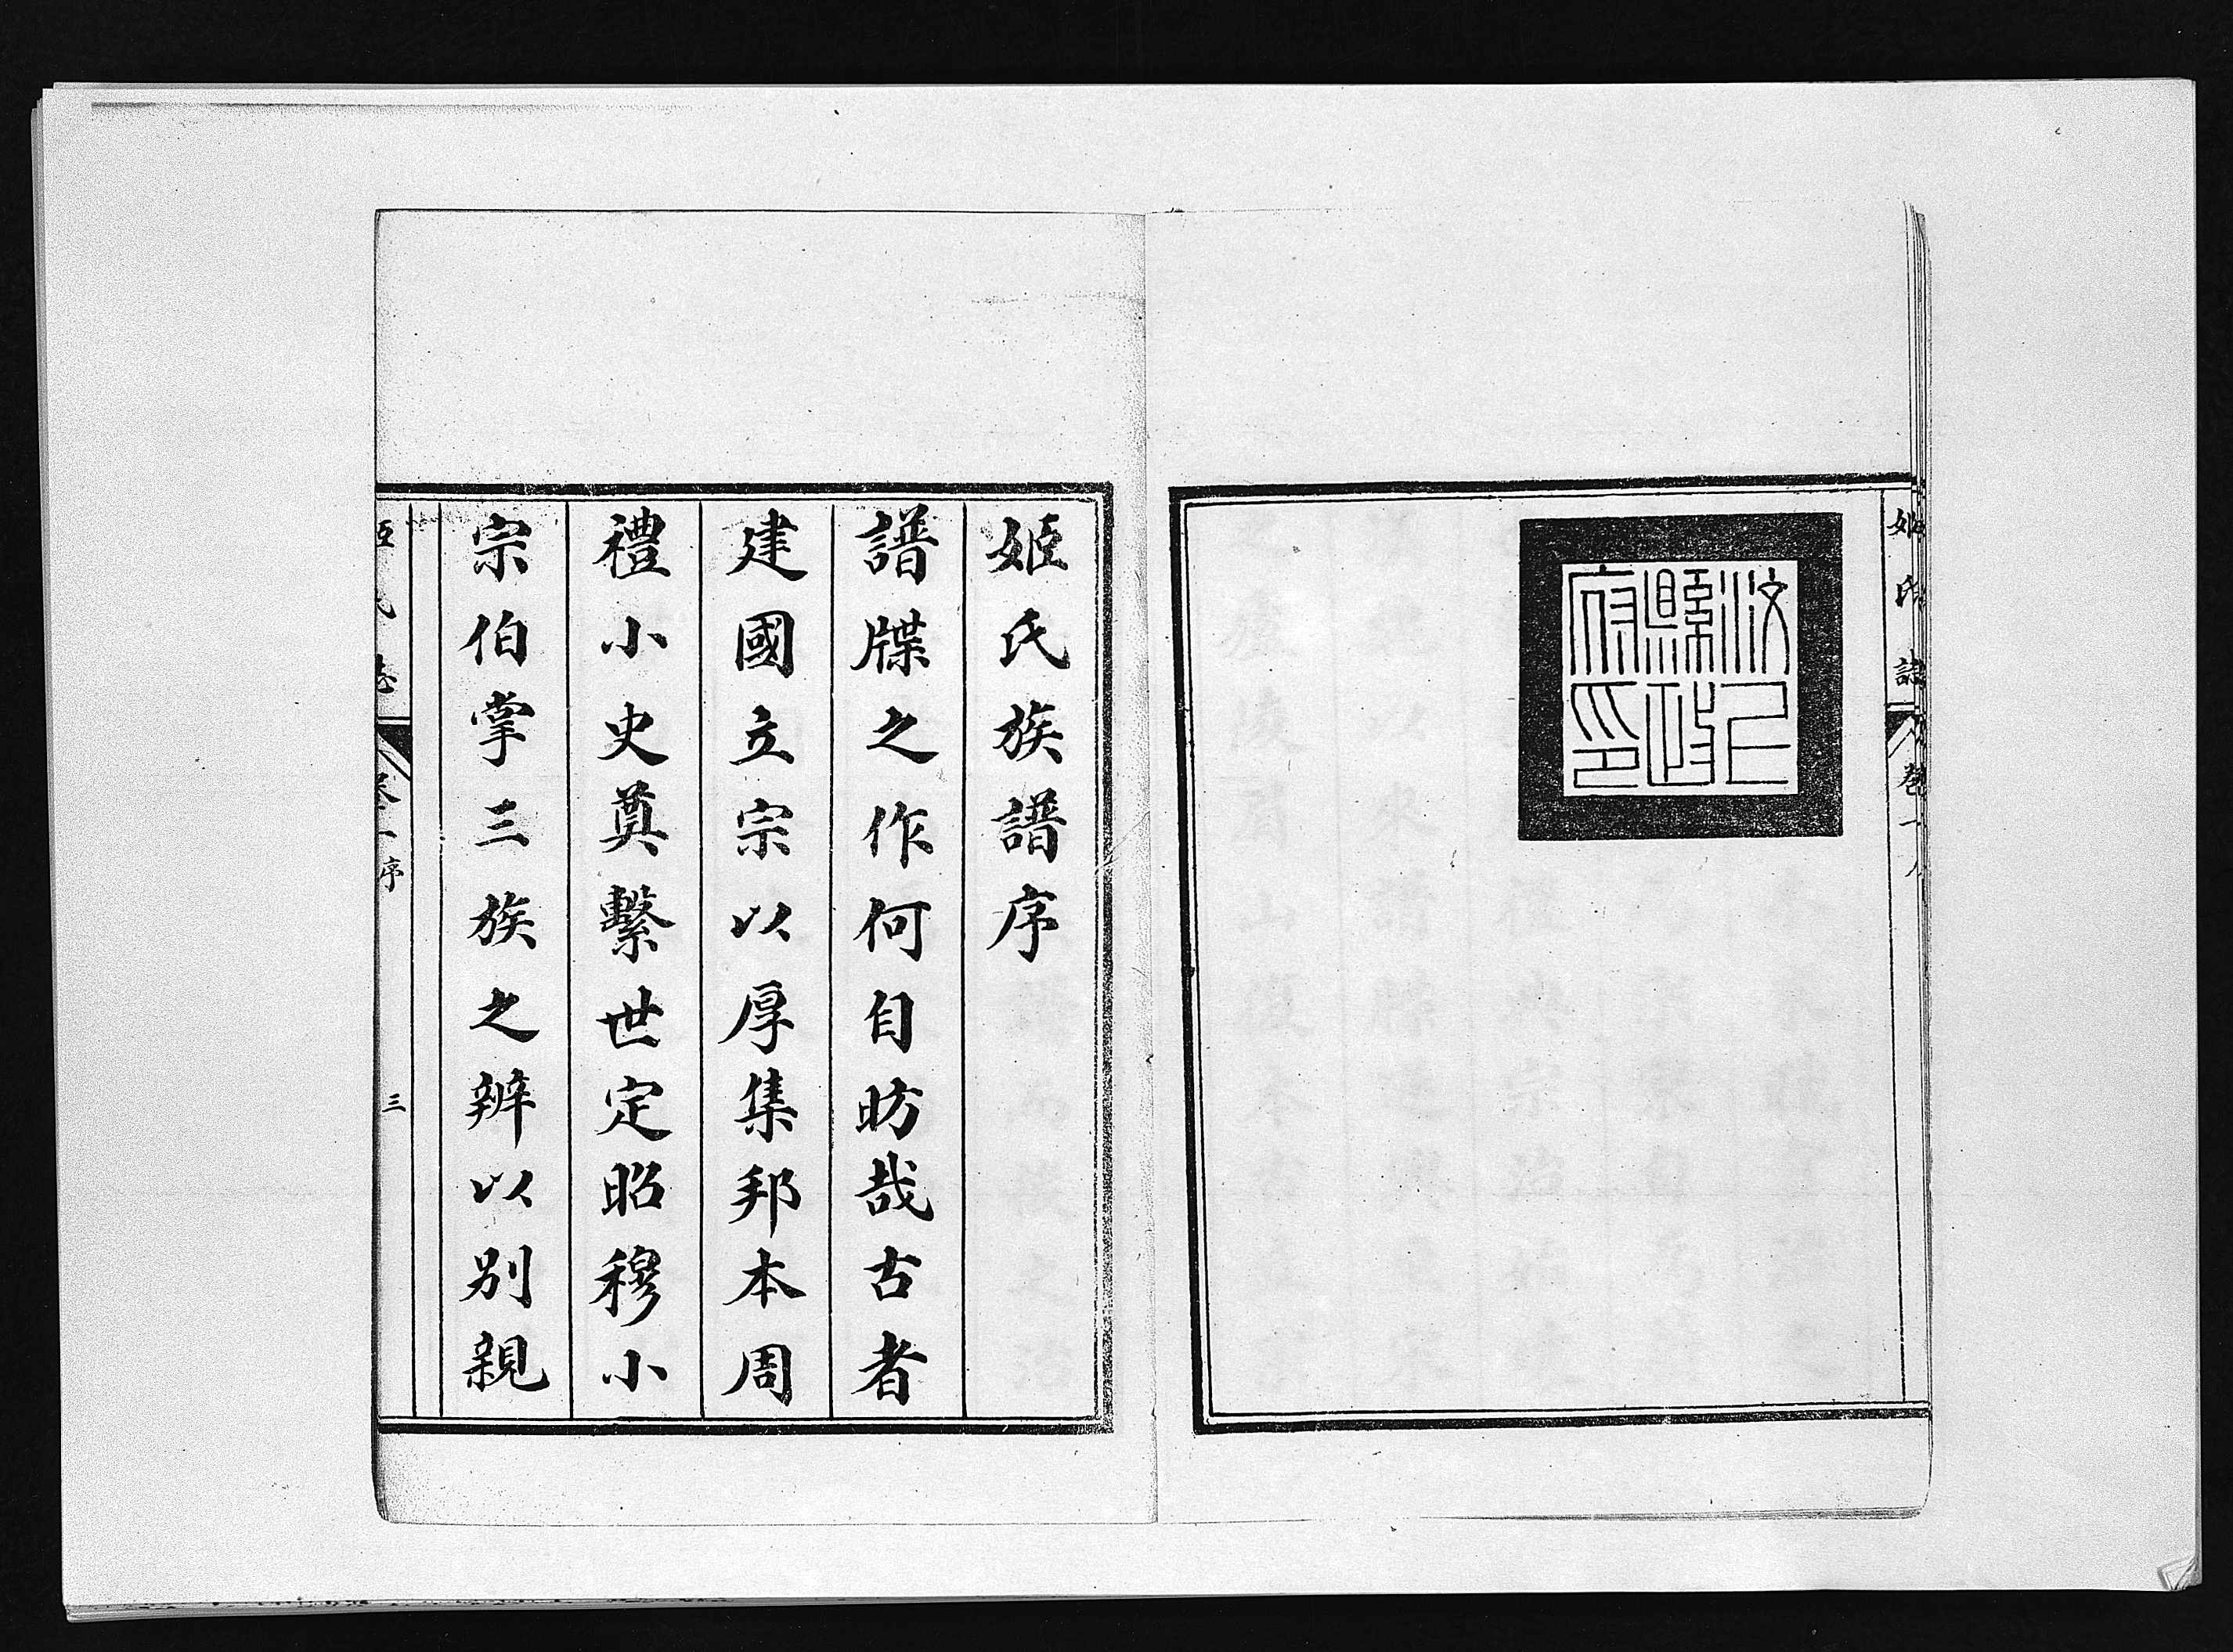 姬氏誌 卷一
縣政
府印
姬氏族譜序
譜牒之作何自昉哉古者
建國立宗以厚集邦本周
禮小史奠繫世定昭穆小
宗伯掌三族之辨以別親
序 三